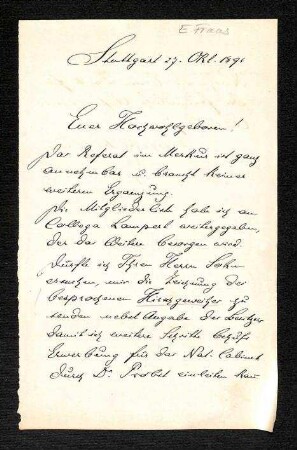 E Fraas
Stuttgart 27. Okt. 1890
Euer Hochwohlgeboren!
Das Referat im Merkur ist ganz
annehmbar u. braucht keiner
weiteren Ergänzung.
Die Mitgliederliste habe ich an
Collega Lampert weitergegeben,
der das Weitere besorgen wird.
Dürfte ich Ihren Herrn Sohn
ersuchen, mir die Zeichnung der
besprochenen Hirschgeweihe zu
senden nebst Angabe der Besitzer
damit ich weitere Schritte behufs
Erwerbung für das Nat. Cabinet
durch Dr. Probst einleiten kann